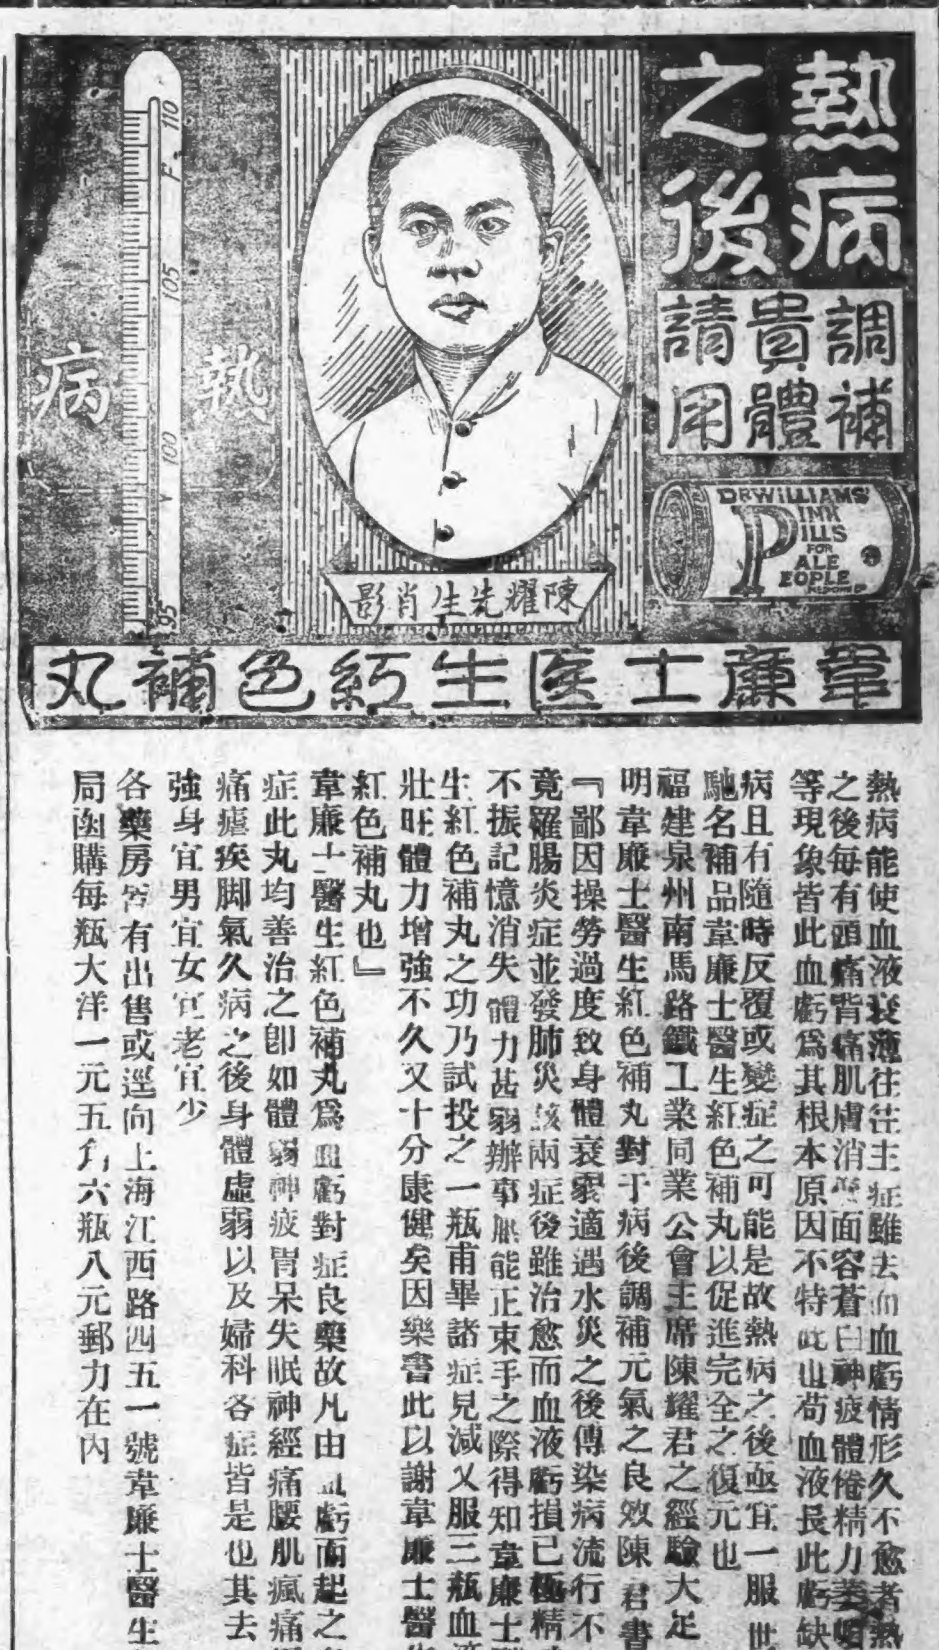 熱病
之後
調補
貴體
請用
DR WILLIAMS'
PINK
PILLS
FOR
PALE
PEOPLE
熱病
F. 110
105
100
95
陳耀先生肖影
韋廉士医生紅色補丸
熱病能使血液衰薄往往主症雖去而血虧情形久不愈者熱
之後每有頭痛背痛肌膚消瘦面容蒼白神疲體倦精力萎
等現象皆此血虧爲其根本原因不特此也苟血液長此虧缺
病且有隨時反覆或變症之可能是故熱病之後亟宜一服世
馳名補品韋廉士醫生紅色補丸以促進完全之復元也
福建泉州南馬路鐵工業同業公會主席陳耀君之經驗大足
明韋廉士醫生紅色補丸對于病後調補元氣之良效陳君書
『鄙因操勞過度致身體衰弱適遇水災之後傳染病流行不
竟罹腸炎症並發肺炎該兩症後雖治愈而血液虧損已極精
不振記憶消失體力甚弱辦事無能正束手之際得知韋廉士
生紅色補丸之功乃試投之一瓶甫畢諸症見減又服三瓶血
壯旺體力增強不久又十分康健矣因樂書此以謝韋廉士醫
紅色補丸也』
韋廉士醫生紅色補丸爲血虧對症良藥故凡由血虧而起之
症此丸均善治之卽如體弱神疲胃呆失眠神經痛腰肌瘋痛
痛瘧疾脚氣久病之後身體虛弱以及婦科各症皆是也其去
強身宜男宜女宜老宜少
各藥房皆有出售或逕向上海江西路四五一號韋廉士醫生
局函購每瓶大洋一元五角六瓶八元郵力在內